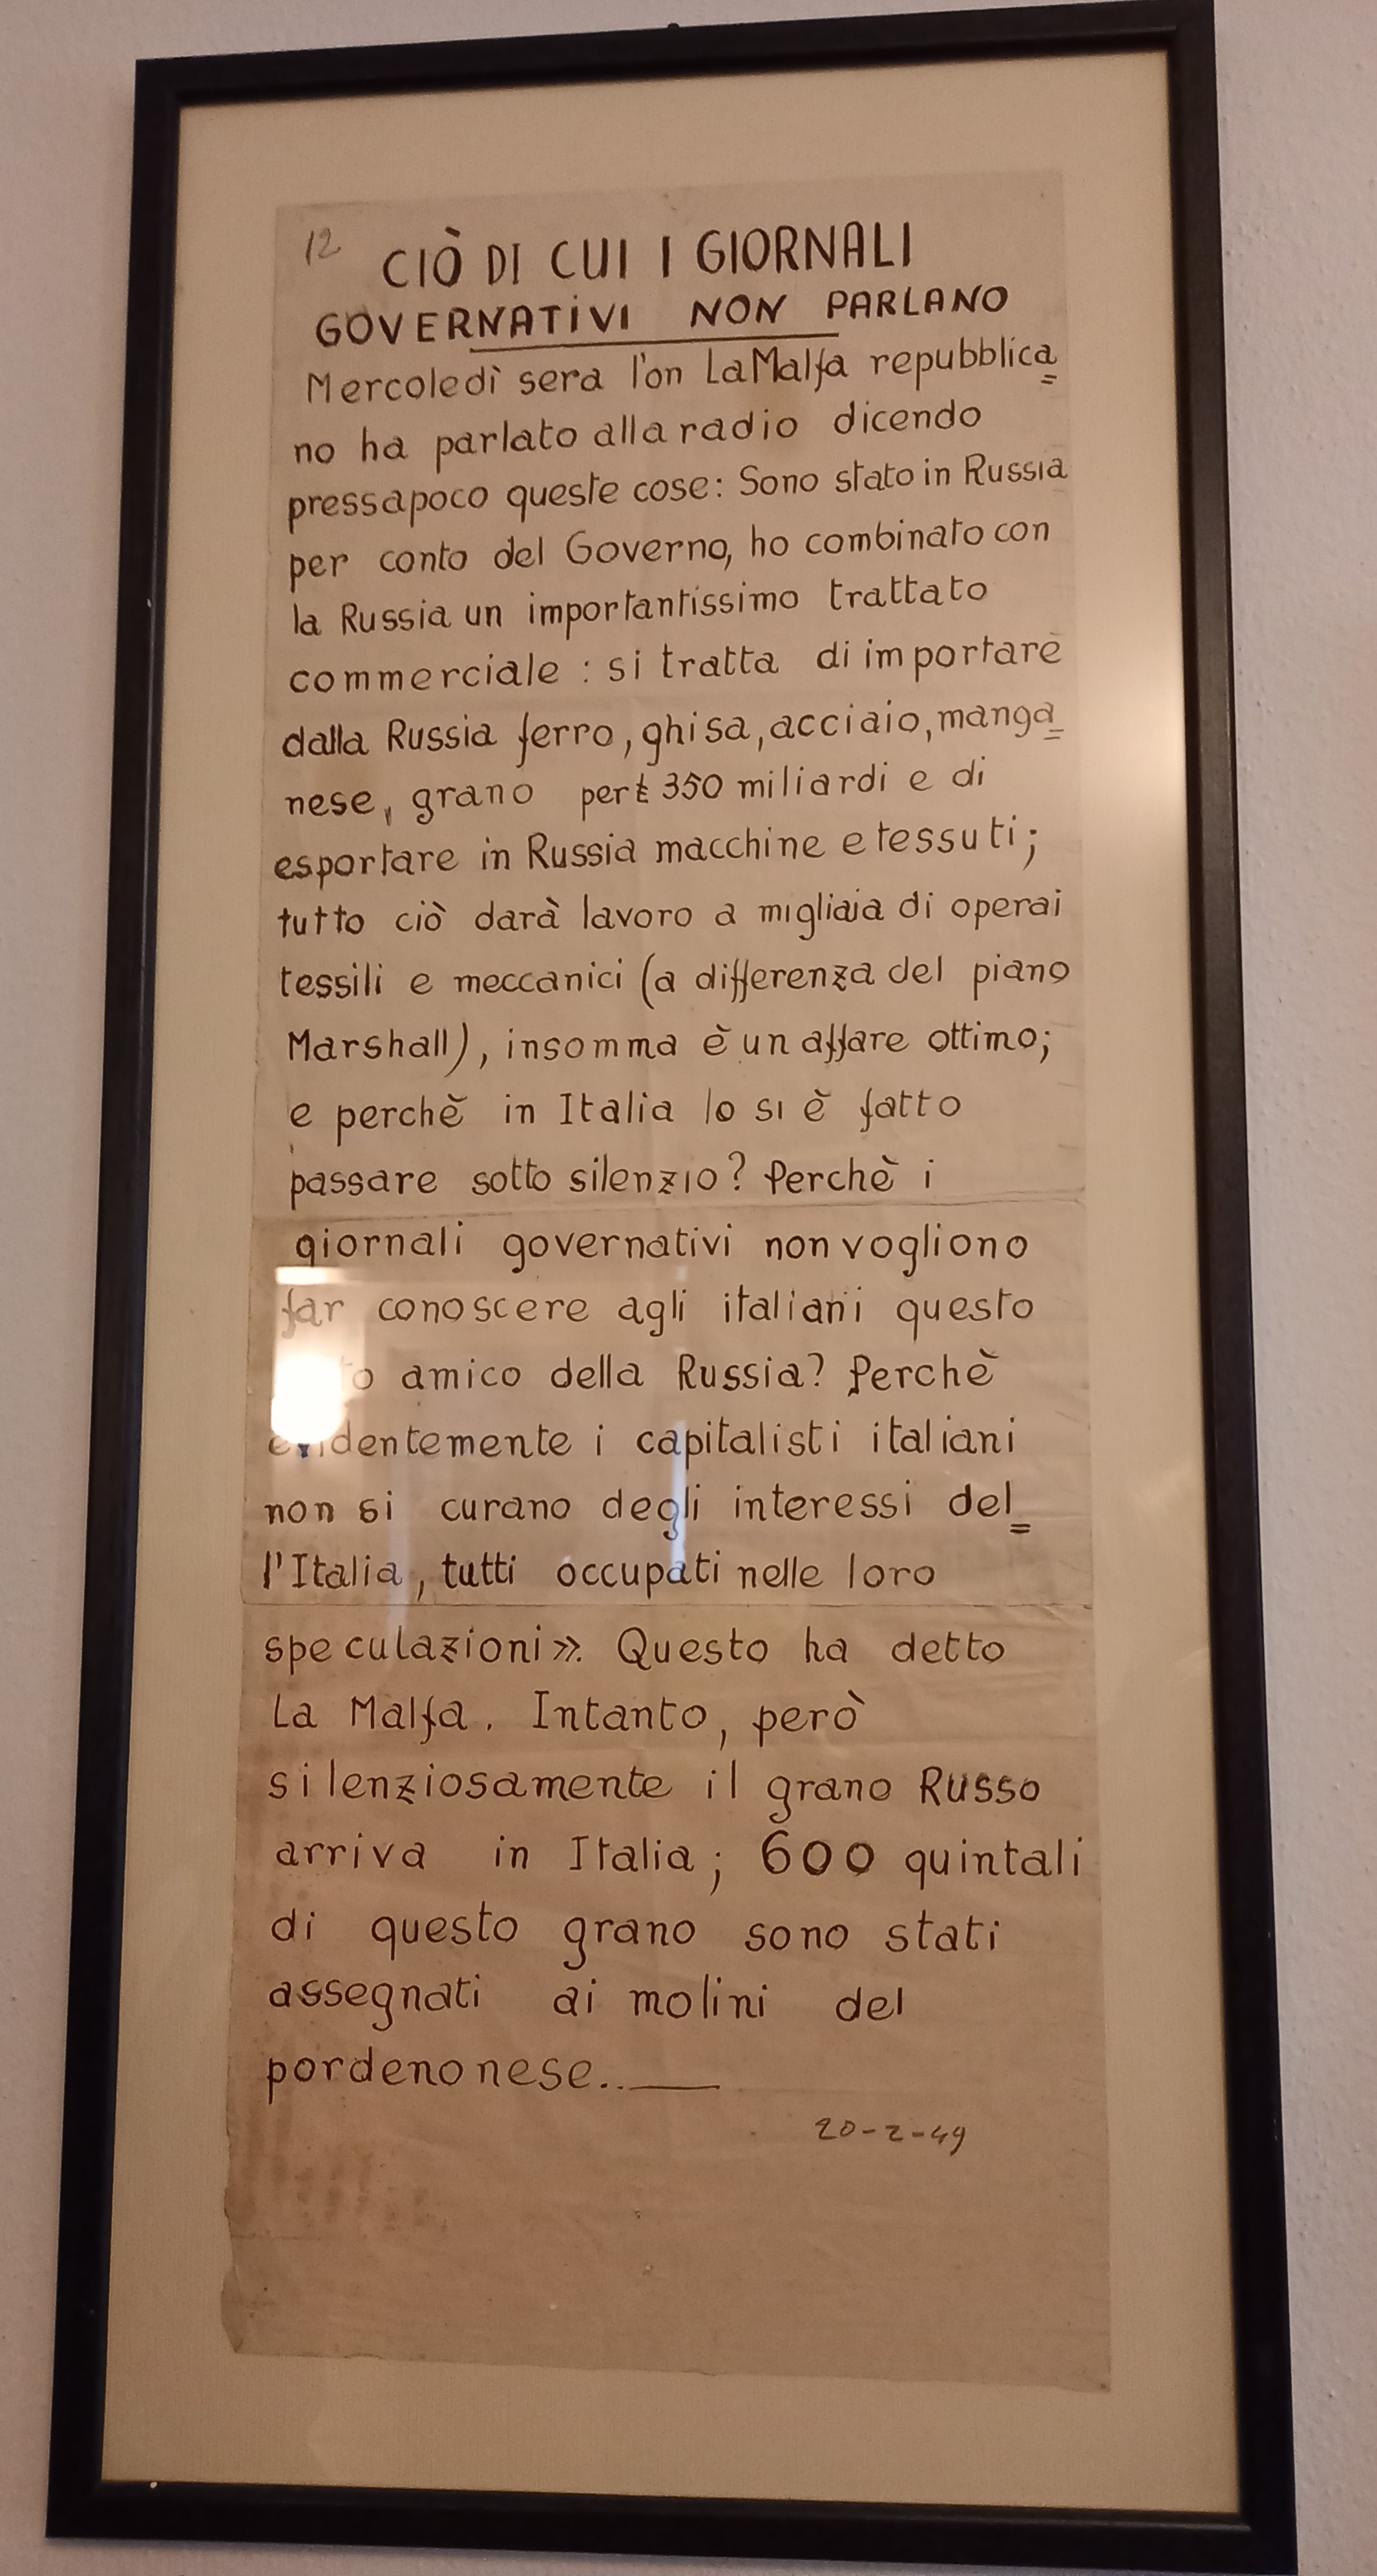 12
CIÒ DI CUI I GIORNALI
GOVERNATIVI NON PARLANO
Mercoledì sera l'on La Malfa repubblica=
no ha parlato alla radio dicendo
pressapoco queste cose: Sono stato in Russia
per conto del Governo, ho combinato con
la Russia un importantissimo trattato
commerciale : si tratta di importare
dalla Russia ferro, ghisa, acciaio, manga=
nese, grano per £ 350 miliardi e di
esportare in Russia macchine e tessuti;
tutto ciò darà lavoro a migliaia di operai
tessili e meccanici (a differenza del piano
Marshall), insomma è un affare ottimo;
e perchè in Italia lo si è fatto
passare sotto silenzio? Perchè i
giornali governativi non vogliono
far conoscere agli italiani questo
amico della Russia? Perchè
evidentemente i capitalisti italiani
non si curano degli interessi del=
l'Italia, tutti occupati nelle loro
speculazioni». Questo ha detto
La Malfa. Intanto, però
silenziosamente il grano Russo
arriva in Italia; 600 quintali
di questo grano sono stati
assegnati ai molini del
pordenonese..
20-2-49